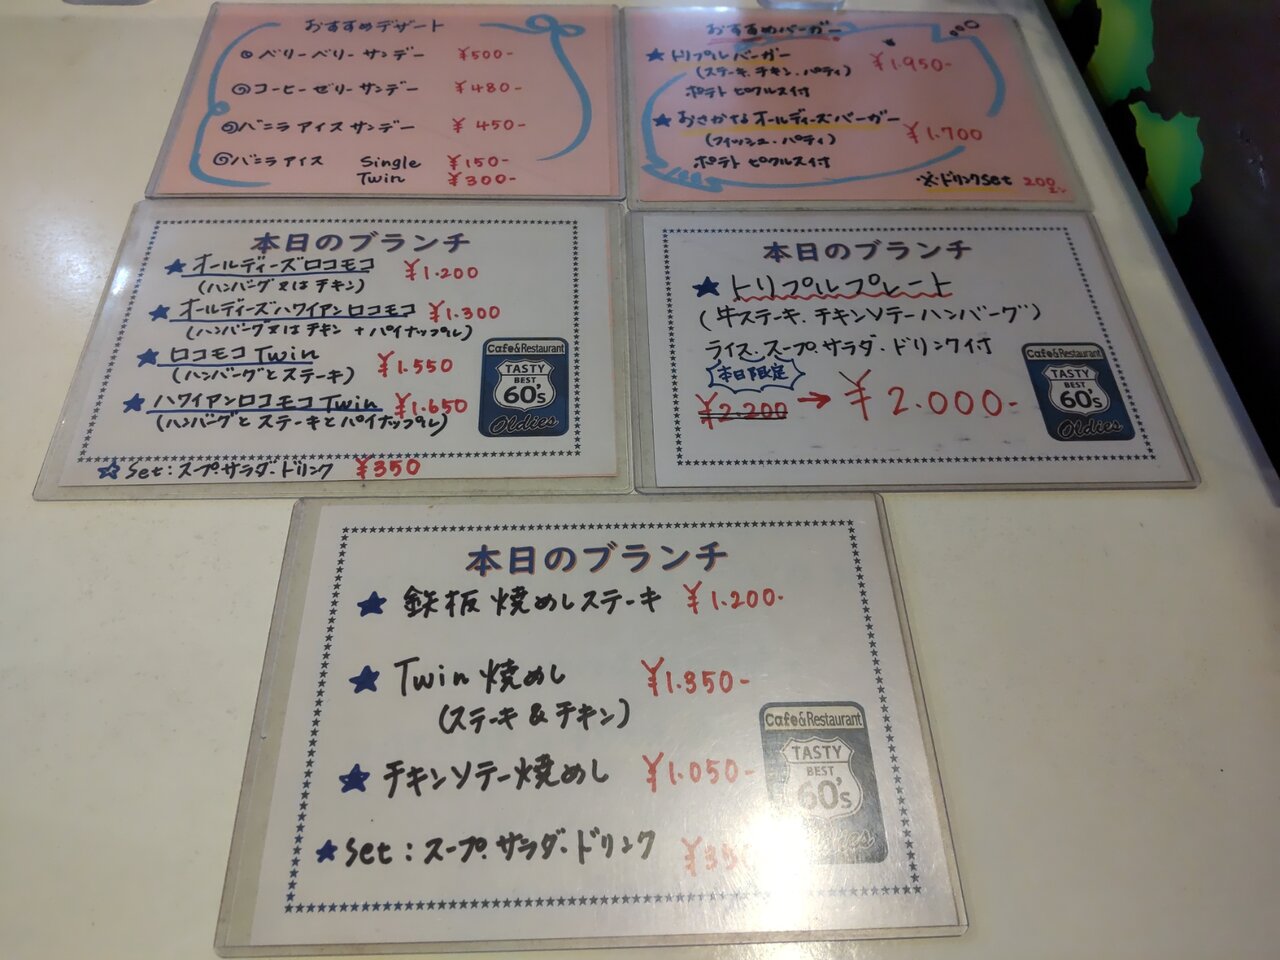 おすすめデザート
ベリーベリーサンデー ¥500-
コーヒーゼリーサンデー ¥480-
バニラアイスサンデー ¥450-
バニラアイス Single ¥150-
Twin ¥300-
おすすめバーガー
★トリプルバーガー ¥1.950-
(ステーキ.チキン.パティ)
ポテト ピクルス付
★おさかなオールディーズバーガー ¥1.700
(フィッシュ・パティ)
ポテト ピクルス付
※ドリンクset 200
本日のブランチ
★オールディーズロコモコ ¥1.200
(ハンバーグ又はチキン)
★オールディーズハワイアンロコモコ ¥1.300
(ハンバーグ又はチキン+パイナップル)
★ロコモコTwin ¥1.550
(ハンバーグとステーキ)
★ハワイアンロコモコTwin ¥1.650
(ハンバーグとステーキとパイナップル)
☆Set:スープ.サラダ.ドリンク ¥350
Cafe&Restaurant
TASTY
BEST
60's
Oldies
本日のブランチ
★トリプルプレート
(牛ステーキ.チキンソテーハンバーグ)
ライス.スープ.サラダ.ドリンク付
本日限定
¥2.200→¥2.000-
Cafe&Restaurant
TASTY
BEST
60's
Oldies
本日のブランチ
★鉄板焼めしステーキ ¥1.200-
★Twin焼めし ¥1.350-
(ステーキ&チキン)
★チキンソテー焼めし ¥1.050-
★Set:スープ.サラダ.ドリンク
Cafe&Restaurant
TASTY
BEST
60's
Oldies